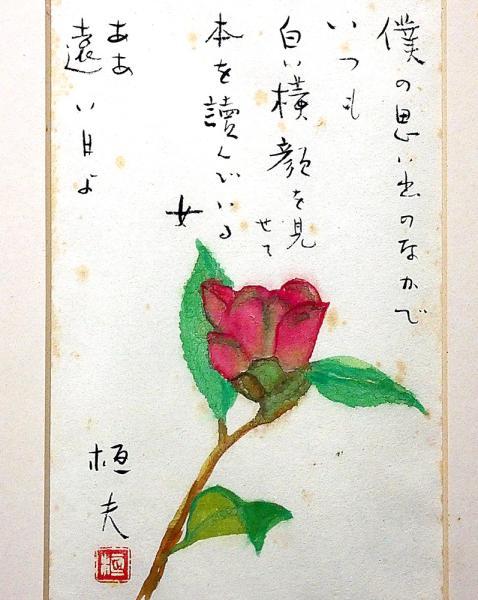 僕の思い出のなかで
いつも
白い横顔を見せて
本を讀んでいる
女
ああ
遠い日よ
桓夫
桓